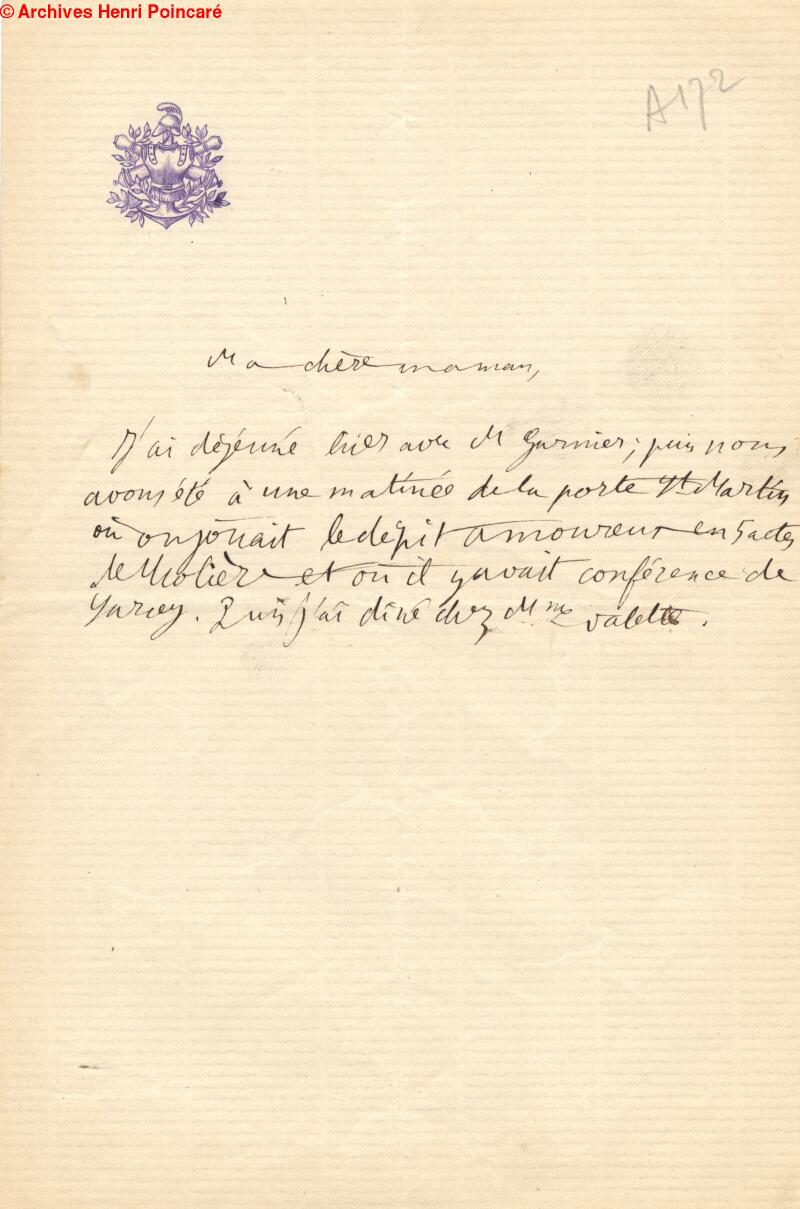 © Archives Henri Poincaré
A172
Ma chère maman,
J'ai déjeuné hier avec M Garnier; puis nous
avons été à une matinée de la porte St Martin
où on jouait le dépit amoureux en 5 actes
de Molière et où il y avait conférence de
Sarcey. Puis j'ai diné chez Mme Valette.